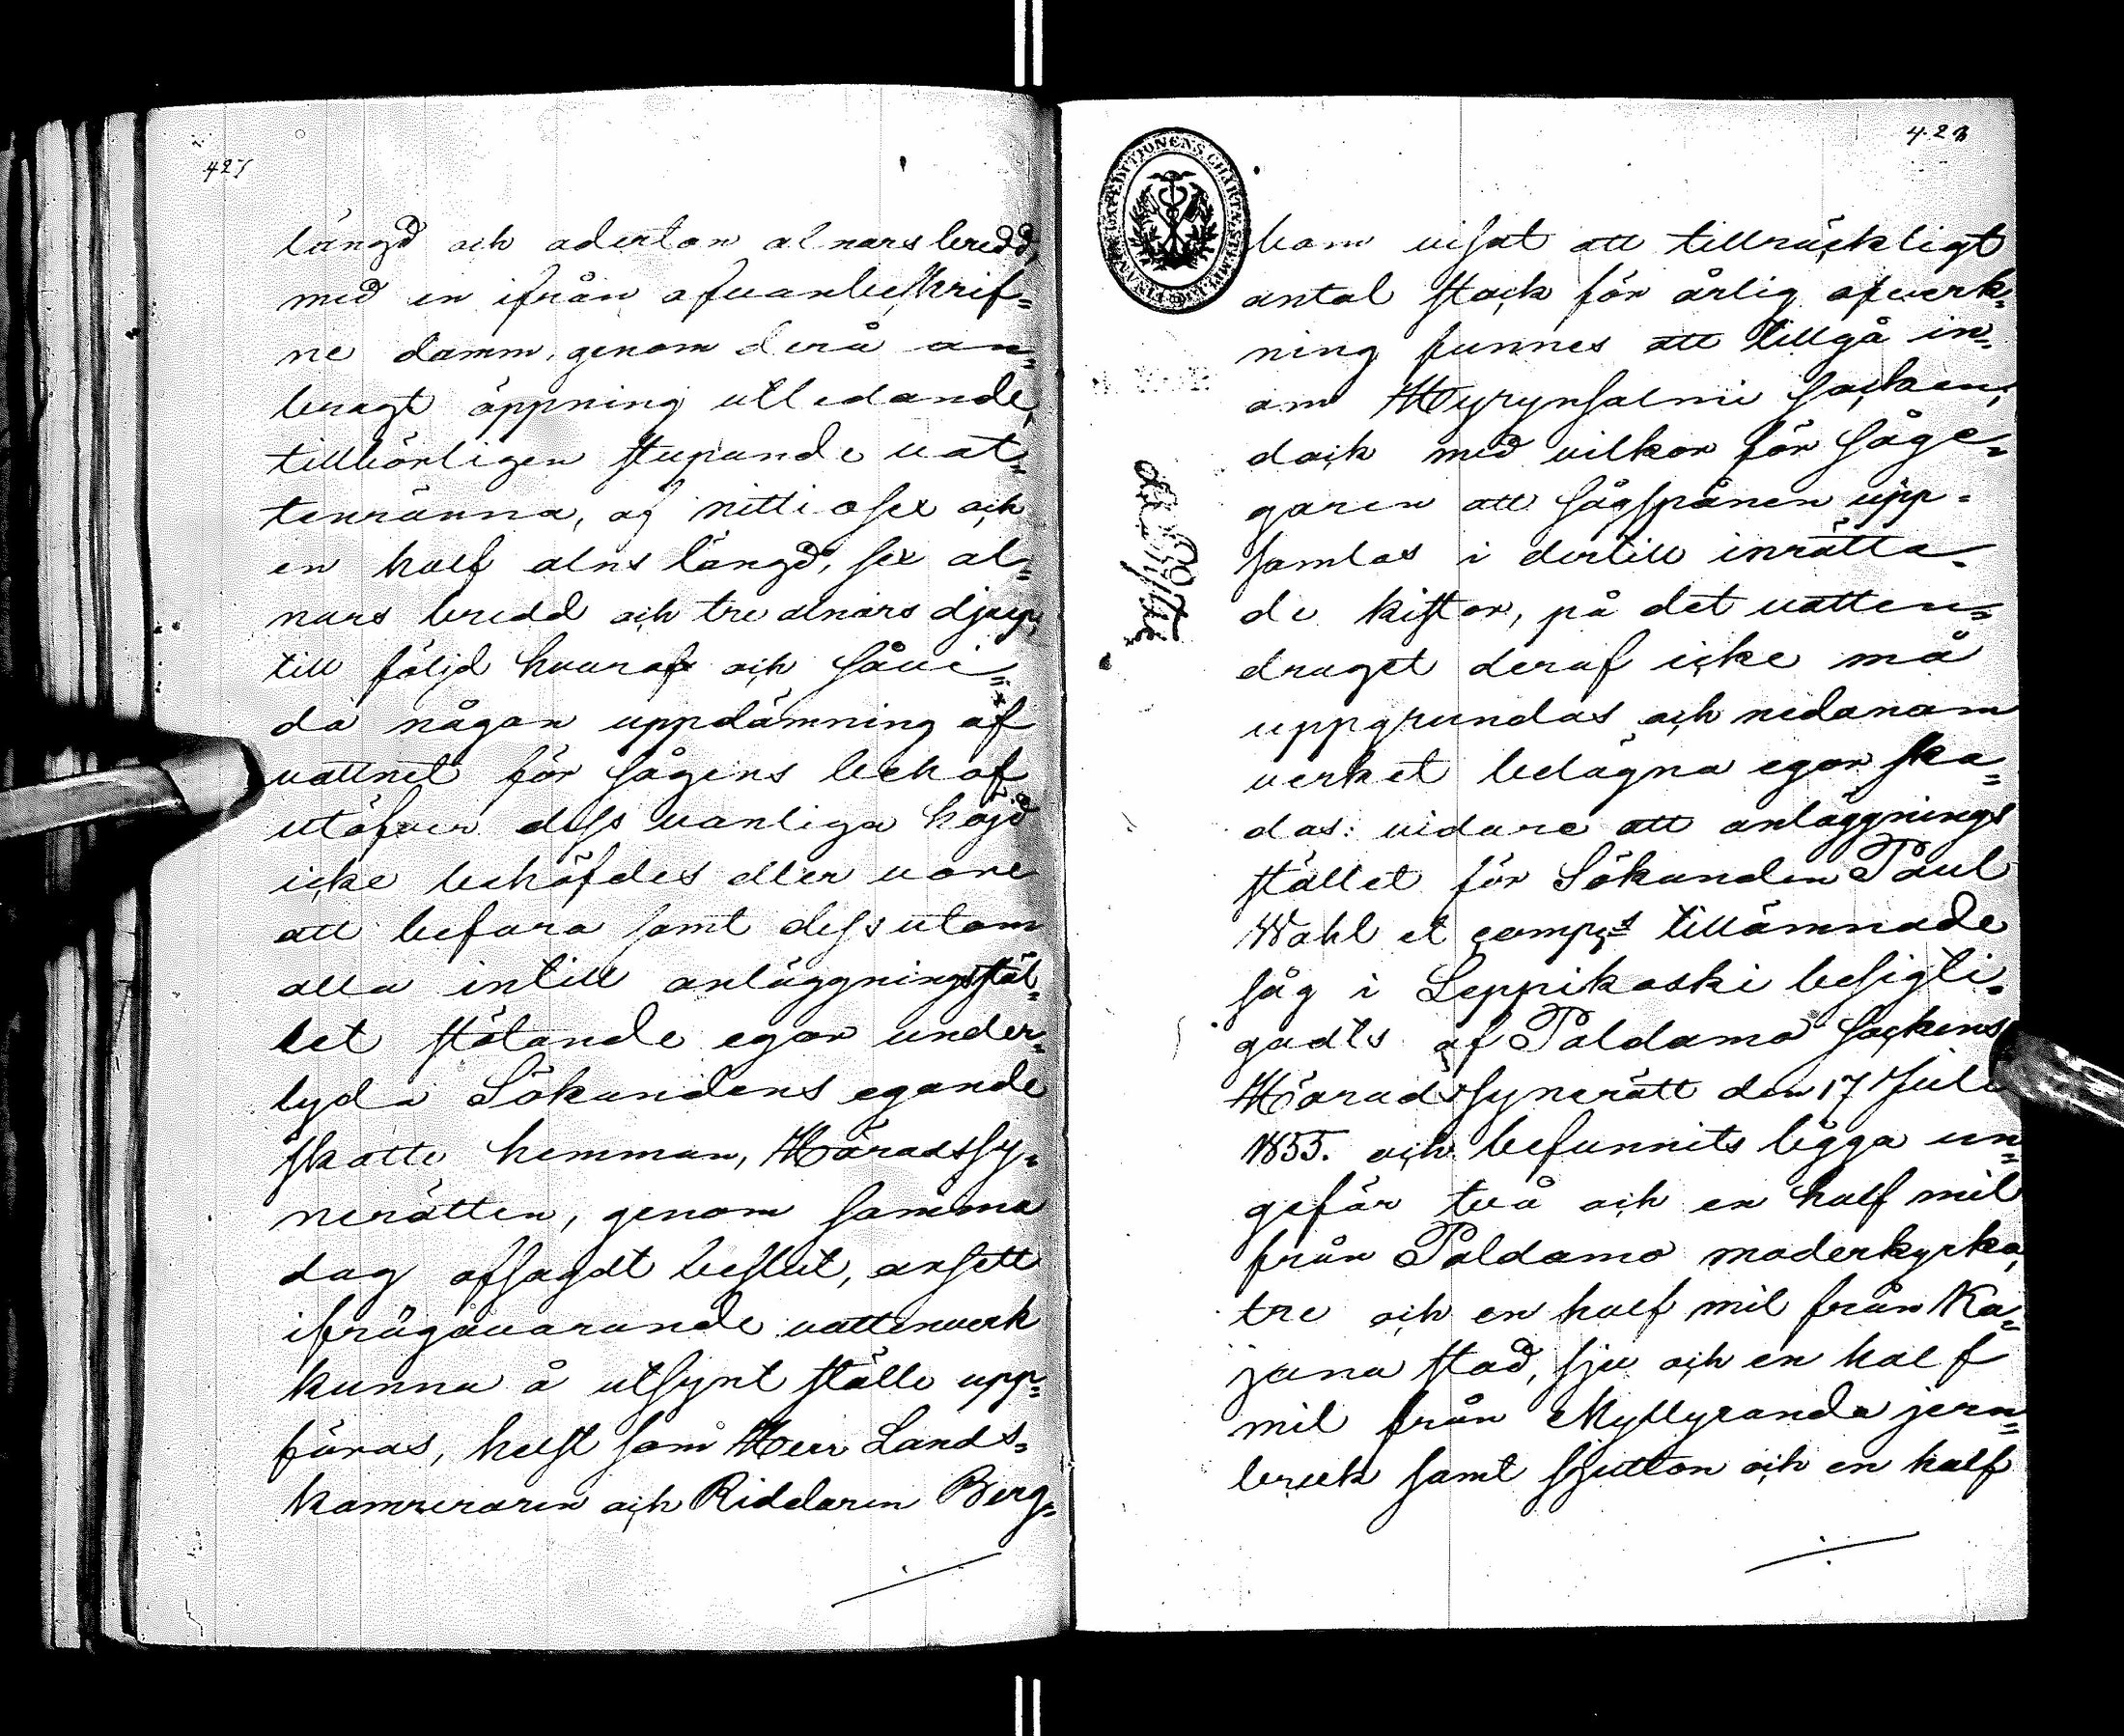 längd och aderton alnars bredd,
med en ifrån ofvanbeskrif=
ne damm, genom derå an=
bragt öppning utledande,
tillbörligen stupande vat=
tenränna, af nittiosex och
en half alns längd, sex al=
nars bredd och tre alnars djup,
till följd hvaraf och såvi=
da någon uppdämning af
vattnet för sågens behof
utöfver dess vanliga höjd
icke behöfdes eller vore
att befara samt dessutom
alla intill anläggningsstäl=
let stötande egor under=
lyda Sökandens egande
skatte hemman, Häradssy=
nerätten, genom samma
dag afsagdt beslut, ansett
ifrågavarande vattenverk
kunna å utsynt ställe upp=
föras, helst som Herr Lands=
kamreraren och Riddaren Berg=
423
bom visat att tillräckligt
antal stock för årlig afverk=
ning funnes att tillgå in=
om Hyrynsalmi socken;
dock med vilkor för såge=
garen att sågspånen upp=
samlas i dertill inrätta=
de kistor, på det vatten=
draget deraf icke må
uppgrundas och nedanom
verket belägna egor ska=
das: vidare att anläggnings
stället för Sökanden Paul
Wahl et comp:s tillämnade
såg i Leppikoski besigti=
gadts af Paldamo sockens
Häradssynerätt den 17 Juli
1855. och befunnits ligga un=
gefär två och en half mil
från Paldamo moderkyrka,
tre och en half mil från Ka=
jana stad, sju och en half
mil från Myllyranda jern=
bruk samt sjutton och en half